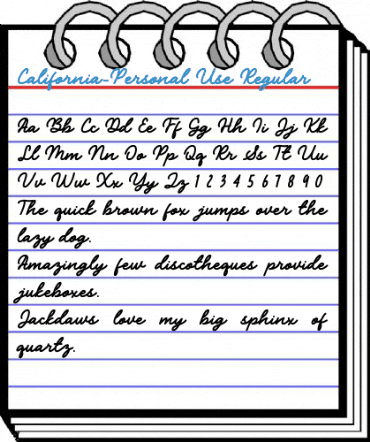 California-Personal Use Regular
Aa Bb Cc Dd Ee Ff Gg Hh Ii Jj Kk
Ll Mm Nn Oo Pp Qq Rr Ss Tt Uu
Vv Ww Xx Yy Zz 1 2 3 4 5 6 7 8 9 0
The quick brown fox jumps over the
lazy dog.
Amazingly few discotheques provide
jukeboxes.
Jackdaws love my big sphinx of
quartz.